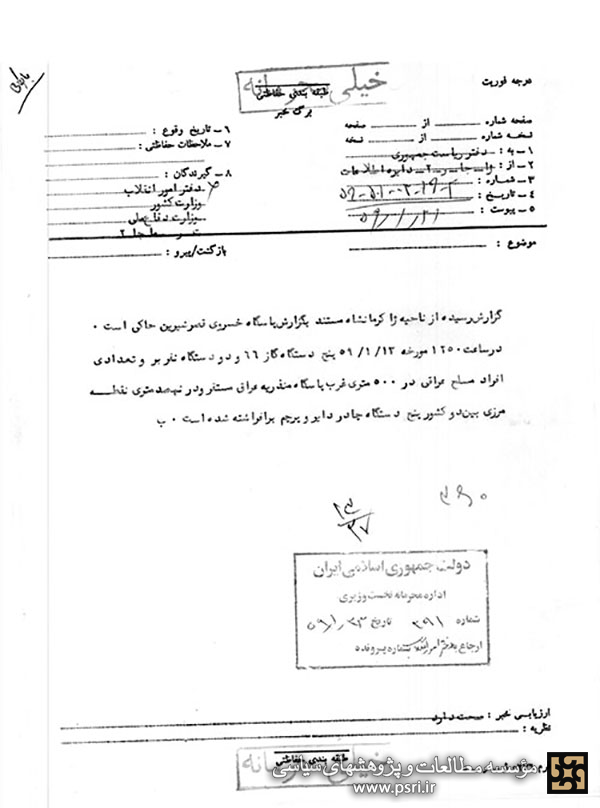 بایگانی
خیلی محرمانه
طبقه بندی حفاظتی
برگ خبر
درجه فوریت
صفحه شماره از صفحه
نسخه شماره از نسخه
۱ - به : دفتر ریاست جمهوری
۲ - از : دایره اطلاعات
۳ - شماره :
۴ - تاریخ :
۵ - پیوست :
۶ - تاریخ وقوع :
۷ - ملاحظات حفاظتی :
۸ - گیرندگان :
دفتر امور انقلاب
وزارت کشور
وزارت دفاع ملی
موضوع :
بازگشت/پیرو :
گزارش رسیده از ناحیه ژا کرمانشاه مستند بگزارش پاسگاه خسروی قصرشیرین حاکی است ۰
در ساعت ۱۲۵۰ مورخه ۵۹/۱/۱۳ پنج دستگاه گاز ۶۶ و دو دستگاه نفربر و تعدادی
افراد مسلح عراقی در ۵۰۰ متری غرب پاسگاه منذریه عراق مستقر و در نهصد متری نقطه
مرزی بین دو کشور پنج دستگاه چادر دایر و پرچم برافراشته شده است ۰ ب
۳۹۰
۱۳
۲۷
دولت جمهوری اسلامی ایران
اداره محرمانه نخست وزیری
شماره ۲۹۱ تاریخ ۵۹/۱/۲۳
ارجاع به دفتر امور انقلاب شماره پرونده
ارزیابی خبر : صحت دارد
نظریه :
طبقه بندی حفاظتی
خیلی محرمانه
موسسه مطالعات و پژوهشهای سیاسی
www.psri.ir